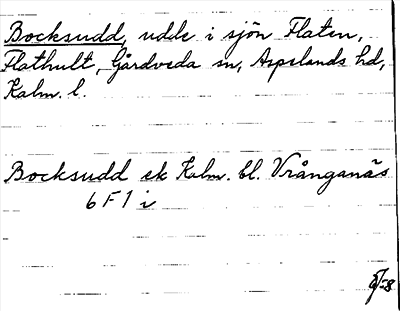 Bocksudd, udde i sjön Flaten,
Flathult, Gårdveda sn, Aspelands hd,
Kalm. l.
Bocksudd ek Kalm. bl. Vrånganäs
6 F 1 i